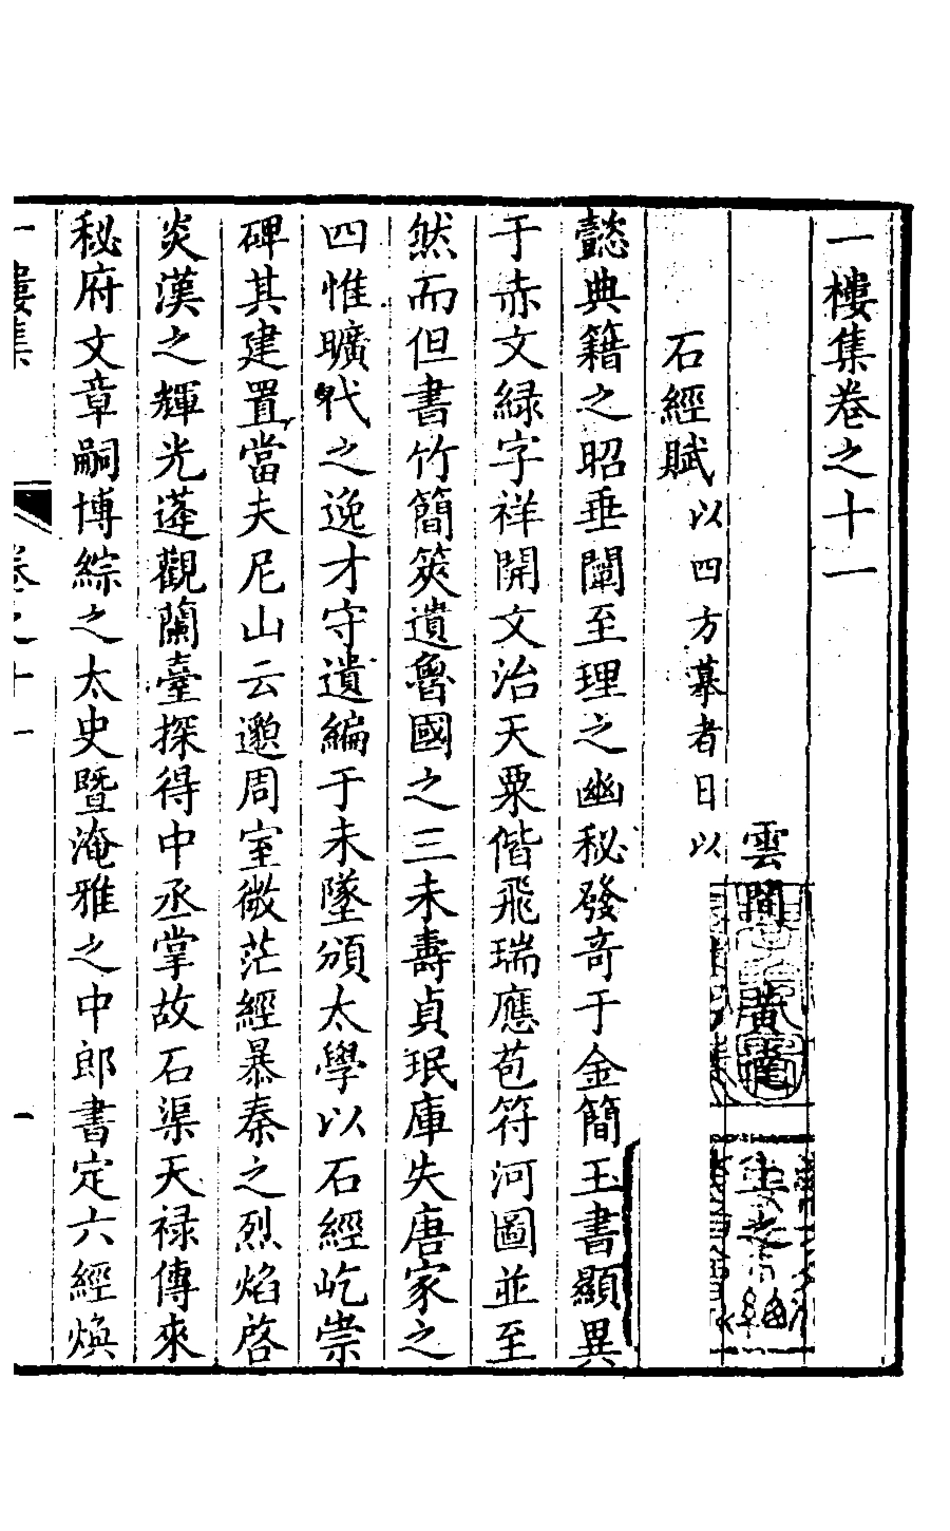 一樓集卷之十一
雲間黃達
石經賦以四方摹者日以
懿典籍之昭垂闡至理之幽秘發竒于金簡玉書顯異
于赤文緑字祥開文治天粟偕飛瑞應苞符河圖並至
然而但書竹簡筴遺魯國之三未壽貞珉庫失唐家之
四惟曠代之逸才守遺編于未墜頒太學以石經屹崇
碑其建置當夫尼山云邈周室微茫經暴秦之烈焰啓
炎漢之輝光蓬觀蘭臺探得中丞掌故石渠天禄傳來
秘府文章嗣博綜之太史暨淹雅之中郎書定六經煥
一樓集
卷之十一
一